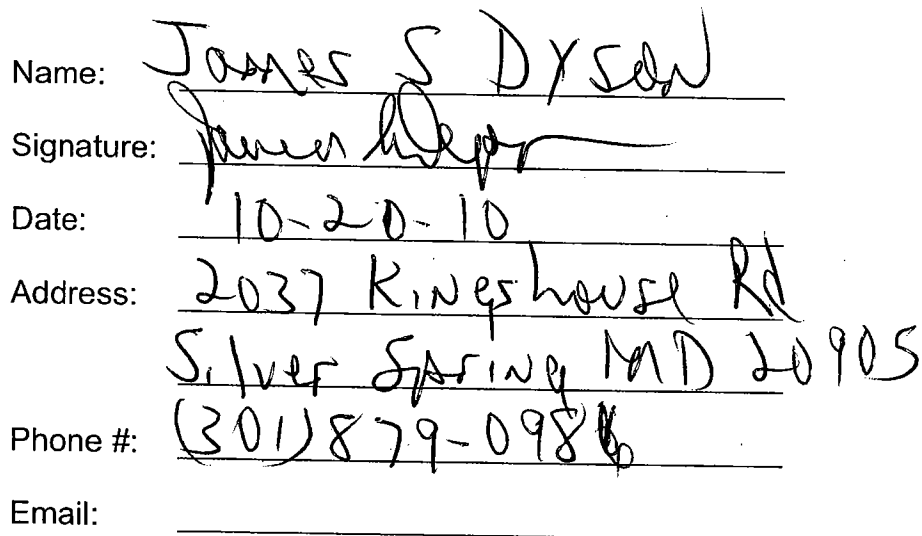 Name: James S Dyson
Signature: James
Date: 10-20-10
Address: 2037 Kingshouse Rd
Silver Spring MD 20905
Phone #: (301) 879-0986
Email: